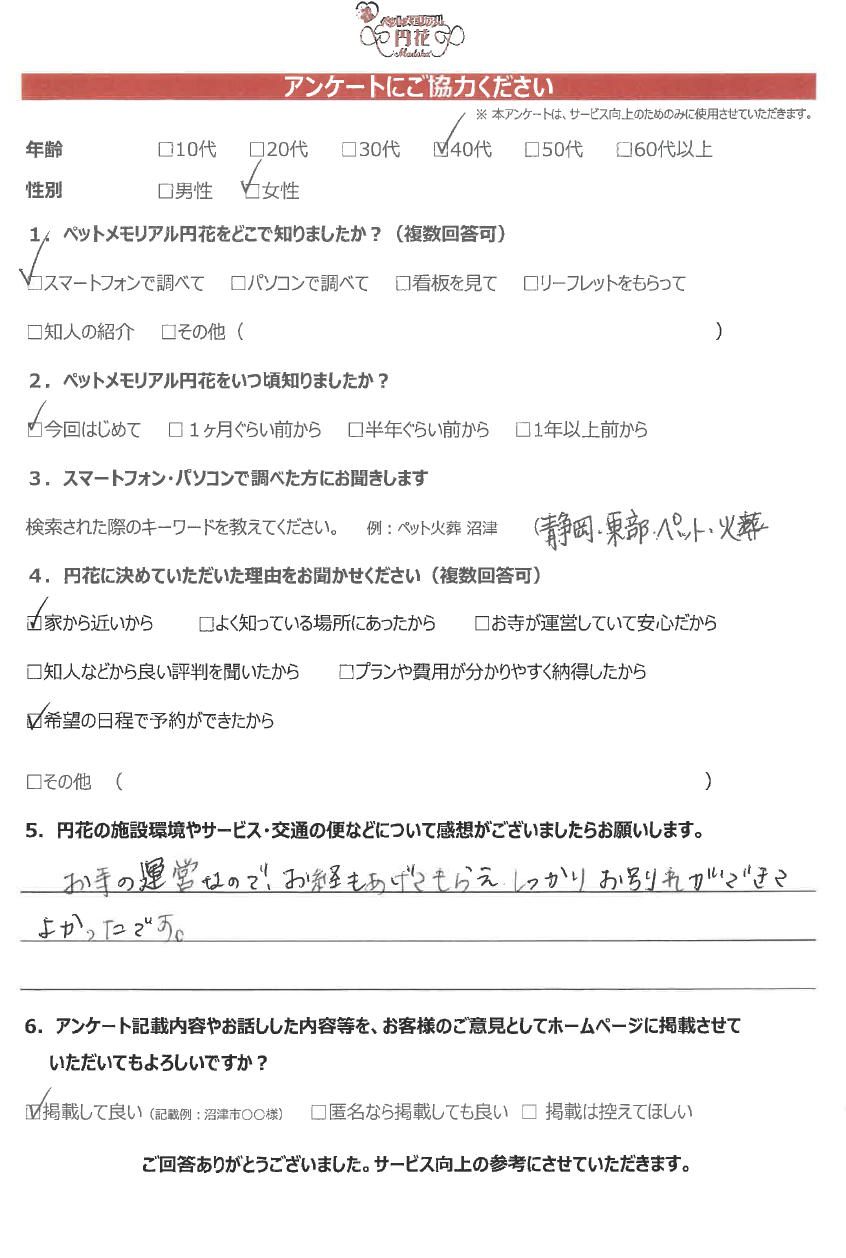 ペットメモリアル
円花
Madoka
アンケートにご協力ください
※ 本アンケートは、サービス向上のためのみに使用させていただきます。
年齢 □10代 □20代 □30代 ☑40代 □50代 □60代以上
性別 □男性 ☑女性
1．ペットメモリアル円花をどこで知りましたか？（複数回答可）
☑スマートフォンで調べて □パソコンで調べて □看板を見て □リーフレットをもらって
□知人の紹介 □その他（ ）
2．ペットメモリアル円花をいつ頃知りましたか？
☑今回はじめて □１ヶ月ぐらい前から □半年ぐらい前から □1年以上前から
3．スマートフォン・パソコンで調べた方にお聞きします
検索された際のキーワードを教えてください。 例：ペット火葬 沼津 （静岡・東部・ペット・火葬
4．円花に決めていただいた理由をお聞かせください（複数回答可）
☑家から近いから □よく知っている場所にあったから □お寺が運営していて安心だから
□知人などから良い評判を聞いたから □プランや費用が分かりやすく納得したから
☑希望の日程で予約ができたから
□その他 （ ）
5．円花の施設環境やサービス・交通の便などについて感想がございましたらお願いします。
お寺の運営なので、お経もあげてもらえ しっかり お別れができて
よかったです。
6．アンケート記載内容やお話しした内容等を、お客様のご意見としてホームページに掲載させて
いただいてもよろしいですか？
☑掲載して良い（記載例：沼津市〇〇様） □匿名なら掲載しても良い □ 掲載は控えてほしい
ご回答ありがとうございました。サービス向上の参考にさせていただきます。